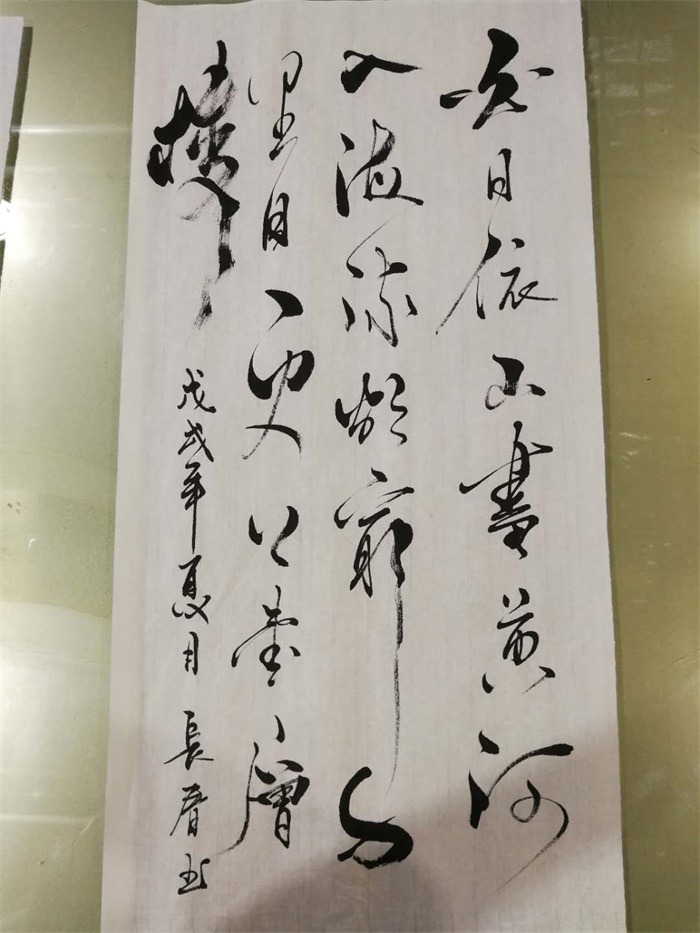 白日依山盡黄河
入海流欲窮千
里目更上壹層
樓 戊戌年夏月 長春书